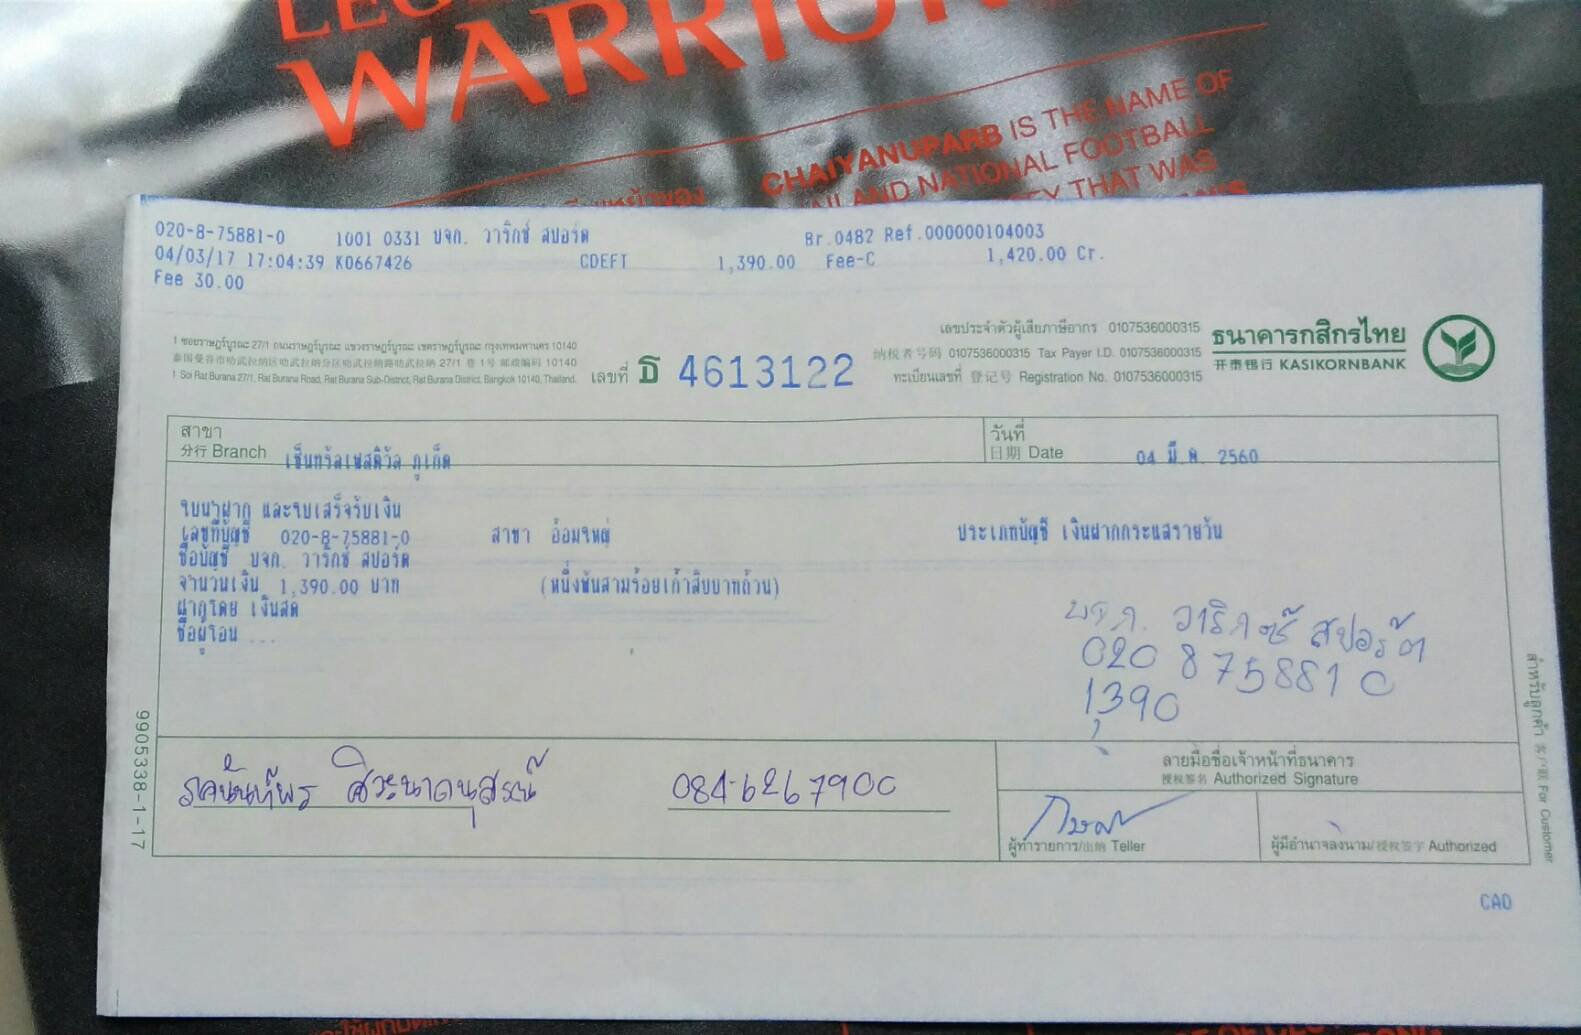 WARRIOR
CHAIYANUPARB IS THE NAME OF
NATIONAL FOOTBALL
THAT WAS
020-8-75881-0 1001 0331 บจก. วาริกซ์ สปอร์ต Br.0482 Ref.000000104003
04/03/17 17:04:39 K0667426 CDEFT 1,390.00 Fee-C 1,420.00 Cr.
Fee 30.00
1 ซอยราษฎร์บูรณะ 27/1 ถนนราษฎร์บูรณะ แขวงราษฎร์บูรณะ เขตราษฎร์บูรณะ กรุงเทพมหานคร 10140
泰国曼谷市叻武拉纳区叻武拉纳分区叻武拉纳路叻武拉纳 27/1 巷 1 号 邮政编码 10140
1 Soi Rat Burana 27/1, Rat Burana Road, Rat Burana Sub-District, Rat Burana District, Bangkok 10140, Thailand.
เลขที่ ธ 4613122
เลขประจำตัวผู้เสียภาษีอากร 0107536000315
纳税者号码 0107536000315 Tax Payer I.D. 0107536000315
ทะเบียนเลขที่ 登记号 Registration No. 0107536000315
ธนาคารกสิกรไทย
开泰银行 KASIKORNBANK
สาขา
分行 Branch เซ็นทรัลเฟสติวัล ภูเก็ต
วันที่
日期 Date 04 มี.ค. 2560
ใบนำฝาก และใบเสร็จรับเงิน
เลขที่บัญชี 020-8-75881-0 สาขา อ้อมใหญ่ ประเภทบัญชี เงินฝากกระแสรายวัน
ชื่อบัญชี บจก. วาริกซ์ สปอร์ต
จำนวนเงิน 1,390.00 บาท (หนึ่งพันสามร้อยเก้าสิบบาทถ้วน)
ฝากโดย เงินสด
ชื่อผู้โอน ...
บจก. วาริกซ์ สปอร์ต
020 875881 0
1,390
084-6267900
ลายมือชื่อเจ้าหน้าที่ธนาคาร
授权签名 Authorized Signature
ผู้ทำรายการ/出纳 Teller
ผู้มีอำนาจลงนาม/授权签字 Authorized
9905338-1-17
สำหรับลูกค้า 客户联 For Customer
CAD